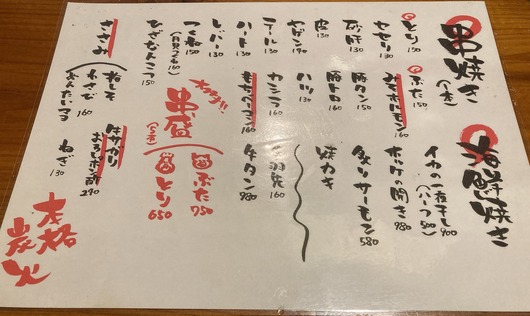 串焼き
(一本)
とり 150
セセリ 130
砂肝 130
皮 130
ヤゲン 170
テール 130
ハート 130
レバー 130
つくね 150
(月見つくね 160)
ひざなんこつ 150
ささみ
梅しそ
わさび 160
めんたいマヨ
ぶた 150
みそホルモン 160
豚タン 150
豚トロ 160
ハツ 130
カシラ 160
もちベーコン 160
串盛
(5本)
ぶた 750
とり 650
牛サガリ
おろしポン酢 290
海鮮焼き
イカの一夜干し 900
(ハーフ 500)
ホッケの開き 980
炙りサーモン 580
焼カキ
手羽先 160
牛タン 980
ねぎ 130
本格
炭火